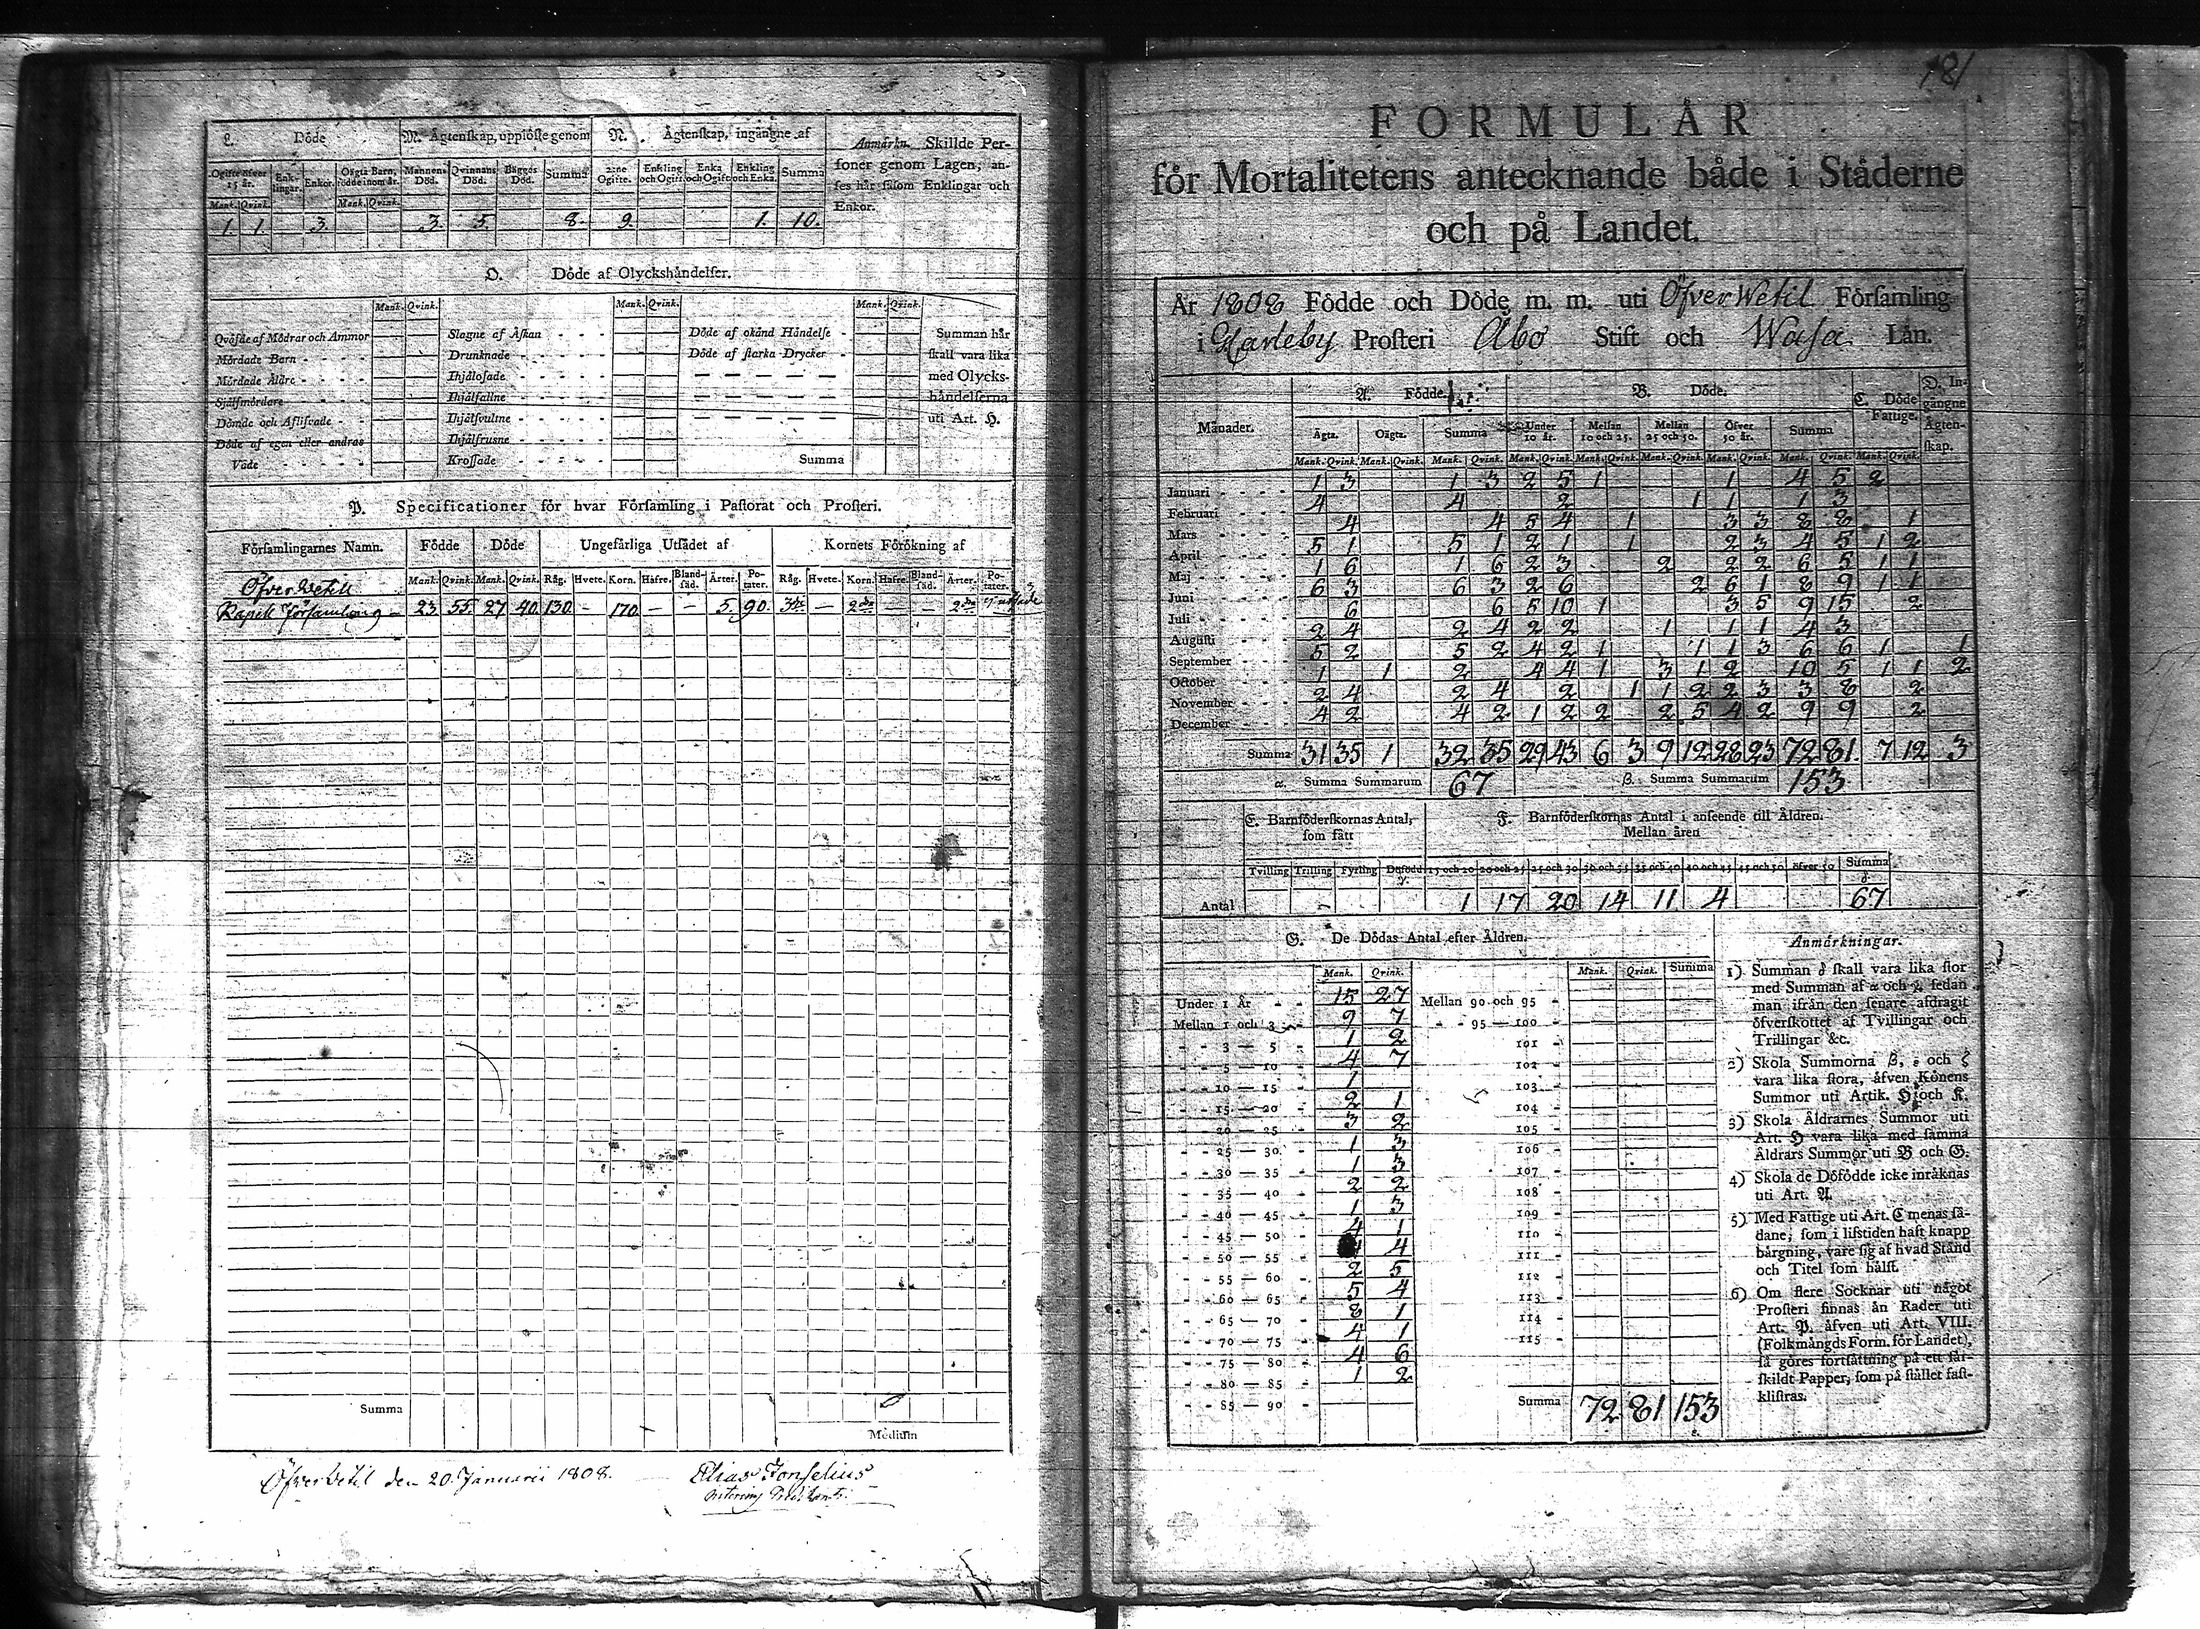 L. Döde
M. Ägtenskap, upplöste genom
N. Ägtenskap, ingångne af
Anmärkn. Skillde Personer genom Lagen, anses här såsom Enklingar och Enkor.
Ogifte öfver 15 år. Enklingar. Enkor. Oägta Barn, födde inom år. Mannens Död. Qvinnans Död. Bägges Död. Summa 2:ne Ogifte. Enkling och Ogift Enka och Ogift Enkling och Enka. Summa
Mank. Qvink. Mank. Qvink.
1. 1. 3. 3. 5. 8. 9. 1. 10.
O. Döde af Olyckshändelser.
Mank. Qvink. Mank. Qvink. Mank. Qvink.
Qväfde af Mödrar och Ammor Slagne af Åskan Döde af okänd Händelse Summan här
Mördade Barn Drunknade Döde af starka Drycker skall vara lika
Mördade Äldre Ihjälosade med Olycks-
Själfmördare Ihjälfallne händelserna
Dömde och Aflifvade Ihjälsvultne uti Art. H.
Döde af egen eller andras Ihjälfrusne
Våde Krossade Summa
P. Specificationer för hvar Församling i Pastorat och Prosteri.
Församlingarnes Namn. Födde Döde Ungefärliga Utsädet af Kornets Förökning af
Mank. Qvink. Mank. Qvink. Råg. Hvete. Korn. Hafre. Blandsäd. Ärter. Potater. Råg. Hvete. Korn. Hafre. Blandsäd. Ärter. Potater.
Öfver Wetill
Kapell Församling 23 55 27 40 130 – 170 – – 5. 90.
Summa
Medium
Öfver Wetil den 20. Januarii 1808. Elias Jonselius
181
FORMULÄR
för Mortalitetens antecknande både i Städerne
och på Landet.
År 1808 Födde och Döde m. m. uti Öfver Wetil Församling
i Gl Carleby Prosteri Åbo Stift och Wasa Län.
Månader. A. Födde. B. Döde. C. Döde Fattige. D. Ingångne Ägtenskap.
Ägta. Oägta. Summa Under 10 år. Mellan 10 och 25. Mellan 25 och 50. Öfver 50 år. Summa
Mank. Qvink. Mank. Qvink. Mank. Qvink. Mank. Qvink. Mank. Qvink. Mank. Qvink. Mank. Qvink. Mank. Qvink. Mank. Qvink.
Januari 1 3 1 3 2 5 1 1 4 5 2
Februari 4 4 2 1 1 1 3
Mars 4 4 5 4 1 3 3 8 8 1
April 5 1 5 1 2 1 1 2 3 4 5 1 2
Maj 1 6 1 6 2 3 2 2 2 6 5 1 1
Juni 6 3 6 3 2 6 2 6 1 8 9 1 1
Juli 6 6 5 10 1 3 5 9 15 2
Augusti 2 4 2 4 2 2 1 1 1 4 3
September 5 2 5 2 4 2 1 1 1 3 6 6 1 1
October 1 1 2 4 4 1 3 1 2 10 5 1 1 2
November 2 4 2 4 2 1 1 2 2 3 3 8 2
December 4 2 4 2 1 2 2 2 5 4 2 9 9 2
Summa 31 35 1 32 35 29 43 6 3 9 12 28 23 72 81. 7 12 3
α. Summa Summarum 67 β. Summa Summarum 153
E. Barnföderskornas Antal, som fått
F. Barnföderskornas Antal i anseende till Åldren. Mellan åren
Tvilling Trilling Fyrling Dödfödd γ. 15 och 20 20 och 25 25 och 30 30 och 35 35 och 40 40 och 45 45 och 50 öfver 50 Summa δ
Antal 1 17 20 14 11 4 67
G. De Dödas Antal efter Åldren.
Mank. Qvink. Mank. Qvink. Summa
Under 1 År 15 27 Mellan 90 och 95
Mellan 1 och 3 9 7 95 — 100
3 — 5 1 2 101
5 — 10 4 7 102
10 — 15 1 103
15 — 20 2 1 104
20 — 25 3 2 105
25 — 30 1 3 106
30 — 35 1 3 107
35 — 40 2 2 108
40 — 45 1 3 109
45 — 50 4 1 110
50 — 55 4 111
55 — 60 2 5 112
60 — 65 5 4 113
65 — 70 8 1 114
70 — 75 4 1 115
75 — 80 4 6
80 — 85 1 2
85 — 90 Summa 72 81 153
Anmärkningar.
1) Summan δ skall vara lika stor
med Summan af α och γ, sedan
man ifrån den senare afdragit
öfverskottet af Tvillingar och
Trillingar &c.
2) Skola Summorna β, ε och ζ
vara lika stora, äfven Könens
Summor uti Artik. H och K.
3) Skola Åldrarnes Summor uti
Art. H vara lika med samma
Åldrars Summor uti B och G.
4) Skola de Dödfödde icke inräknas
uti Art. A.
5) Med Fattige uti Art. C menas så-
dane, som i lifstiden haft knapp
bärgning, vare sig af hvad Stånd
och Titel som hälst.
6) Om flere Socknar uti något
Prosteri finnas än Rader uti
Art. P. äfven uti Art. VIII.
(Folkmängds Form. för Landet),
så göres fortsättning på ett sär-
skildt Papper, som på stället fast-
klistras.